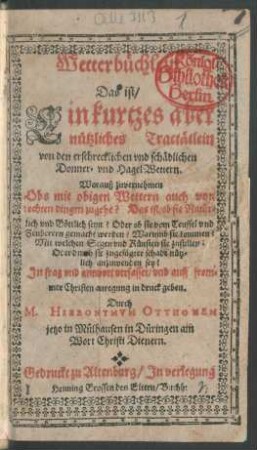 Wetterbüchlein
Das ist/
Ein kurtzes aber
nützliches Tractätlein
von den erschrecklichen vnd schädlichen
Donner- vnd Hagel Wettern.
Worauß zuvernehmen
Obs mit obigen Wettern auch von
rechten dingen zugehe? Das ist/ ob sie Natür-
lich vnd Göttlich seyn? Oder ob sie vom Teuffel vnd
Zauberern gemacht werden? Warumb sie kommen?
Mit welchen Sitten vnd Künsten sie zustillen:
Oder ob zugefügter schade nütz-
lich anzuwenden sey?
In frag vnd antwort verfasset/ vnd auff from-
mer Christen anregung in druck geben.
Durch
M. HIERONYMUM OTTHONEM
jetzo in Mülhausen in Düringen am
Wort Christi Dienern.
Gedruckt zu Altenburg/ In verlegung
Henning Grossen des Eltern/ Buchh:
Königl.
Bibliothek
Berlin